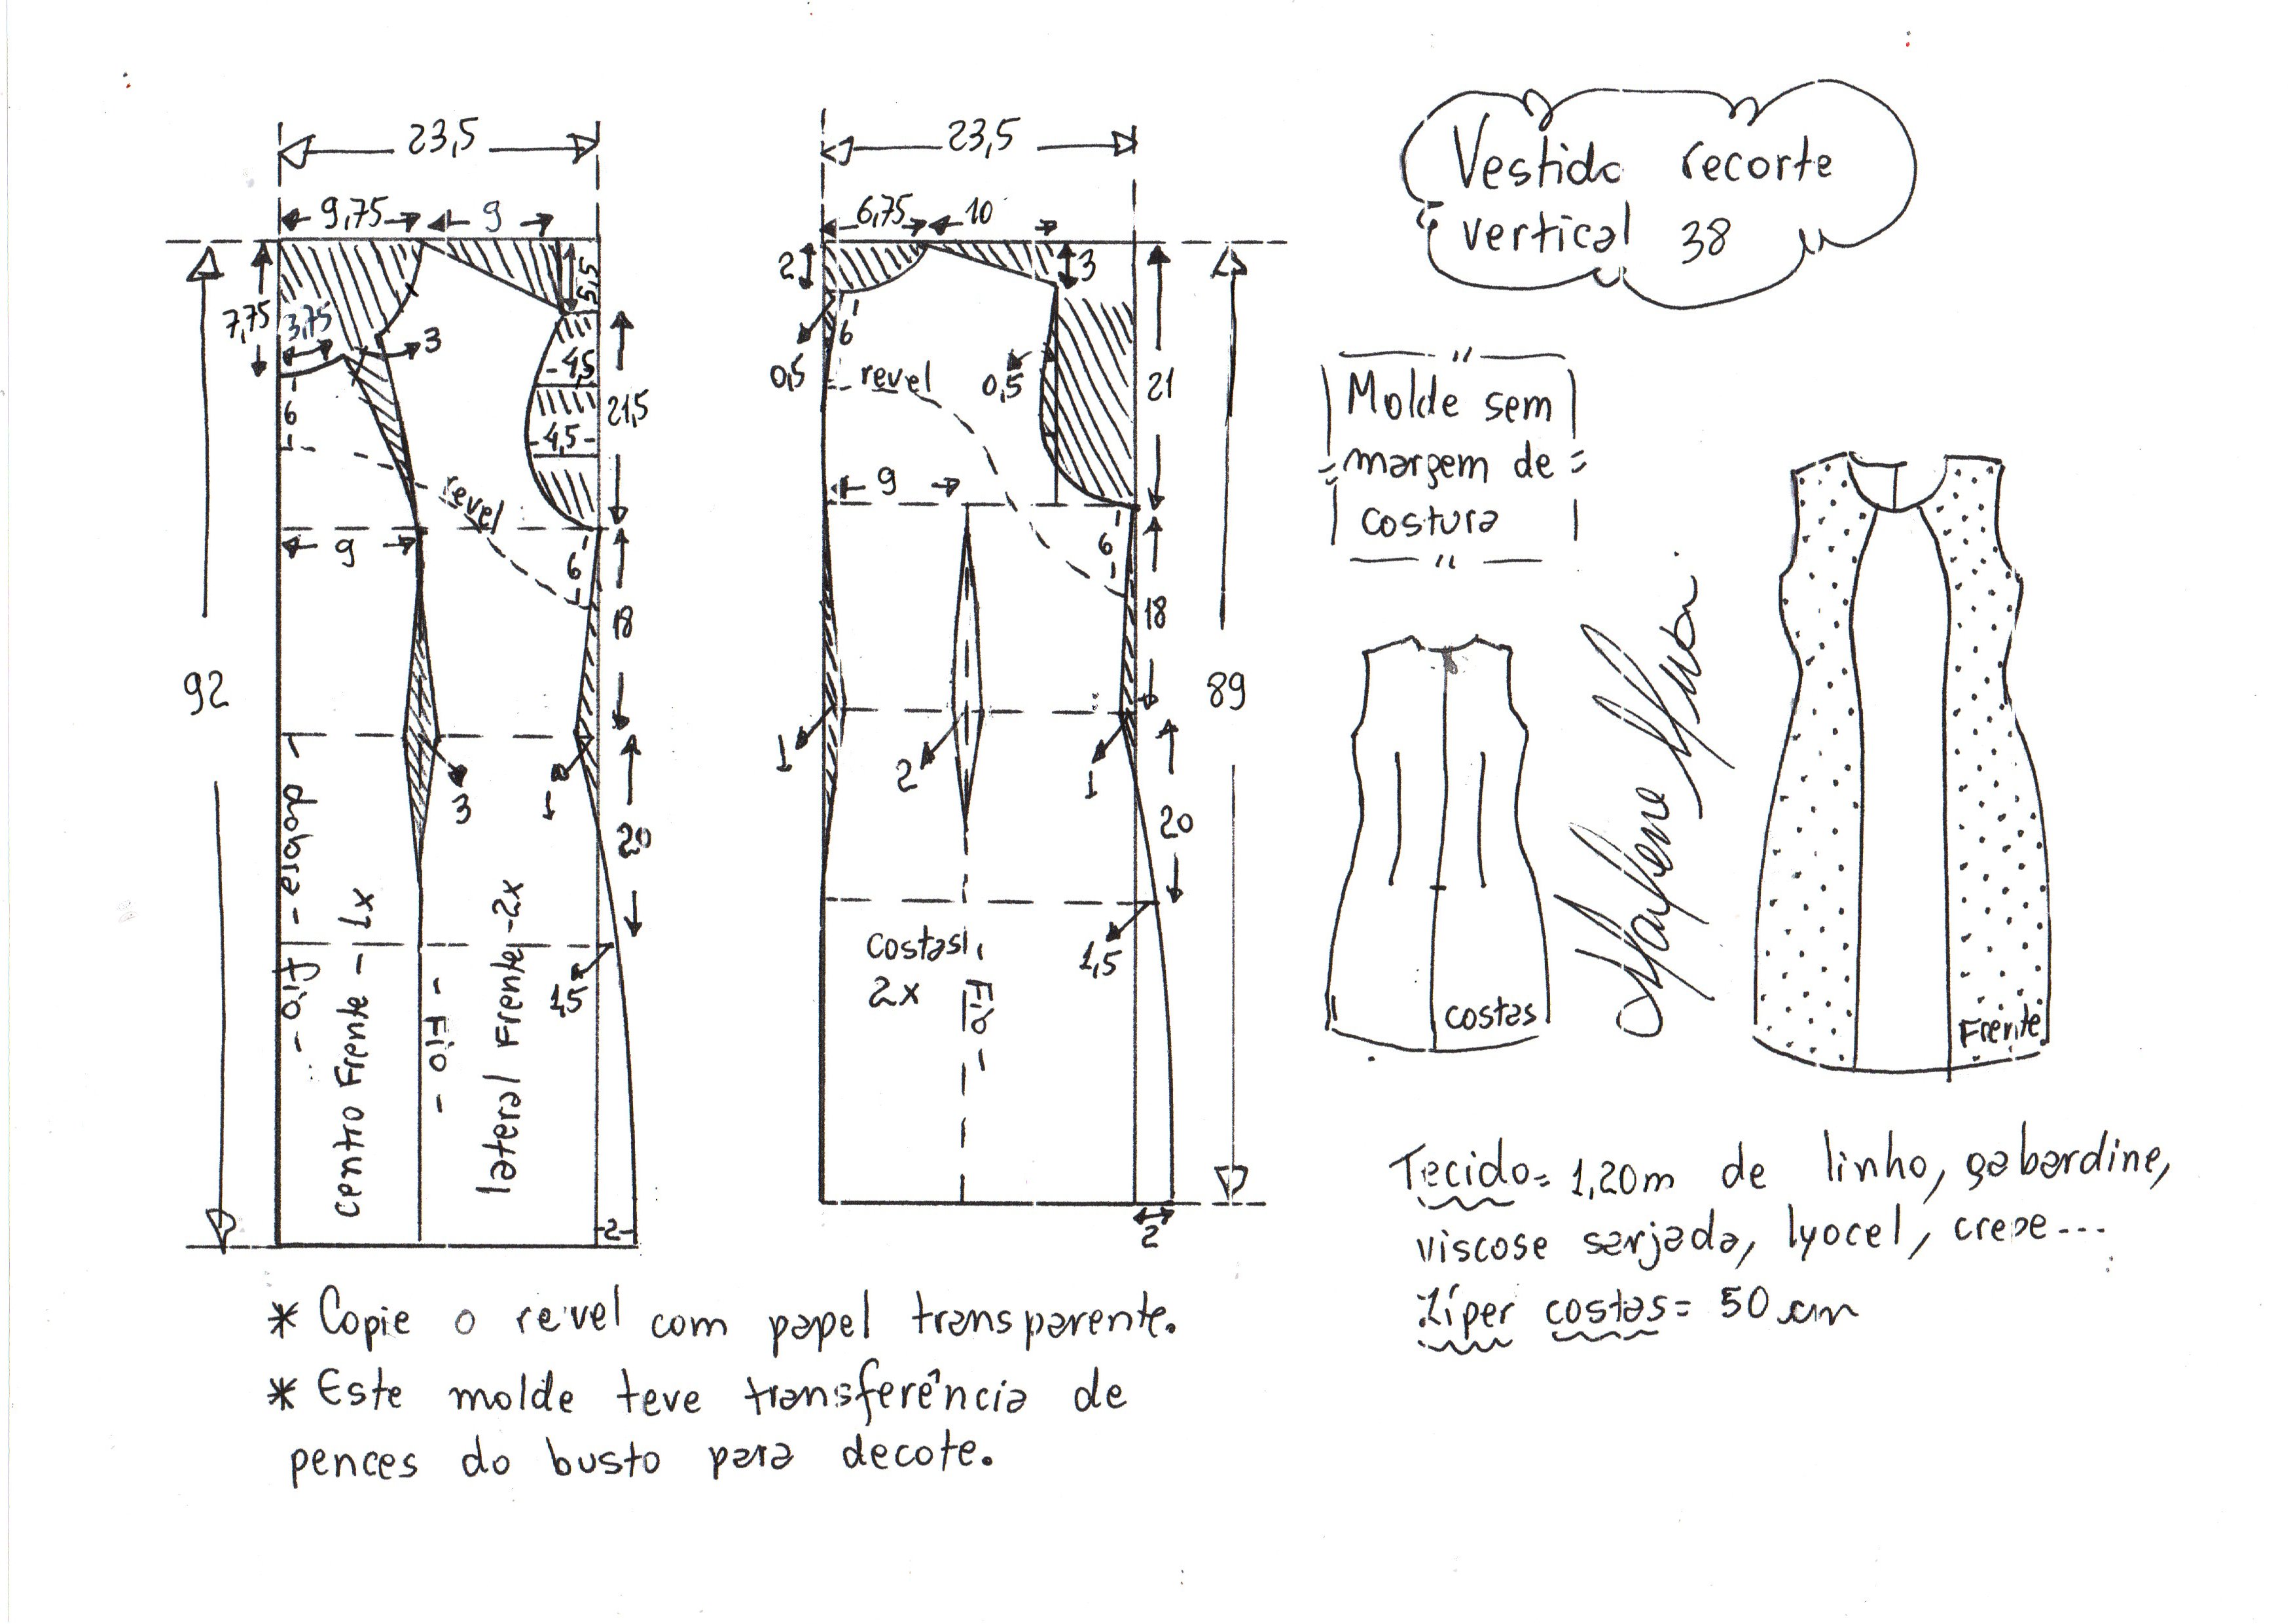 23,5
9,75
9
7,75
3,75
3
5,5
-4,5
-4,5-
21,5
6
revel
9
6
18
92
3
1
20
dobra - fio -
centro Frente - 1x
- Fio -
lateral Frente-2x
1,5
-2-
23,5
6,75
10
2
3
6
0,5
revel
0,5
21
9
6
18
89
1
2
1
20
costas
2x
Fio -
1,5
2
Vestido recorte
vertical 38
Molde sem
margem de
costura
costas
Frente
Tecido= 1,20m de linho, gabardine,
viscose sarjada, lyocel, crepe...
Zíper costas= 50 cm
* Copie o revel com papel transparente.
* Este molde teve transferência de
pences do busto para decote.